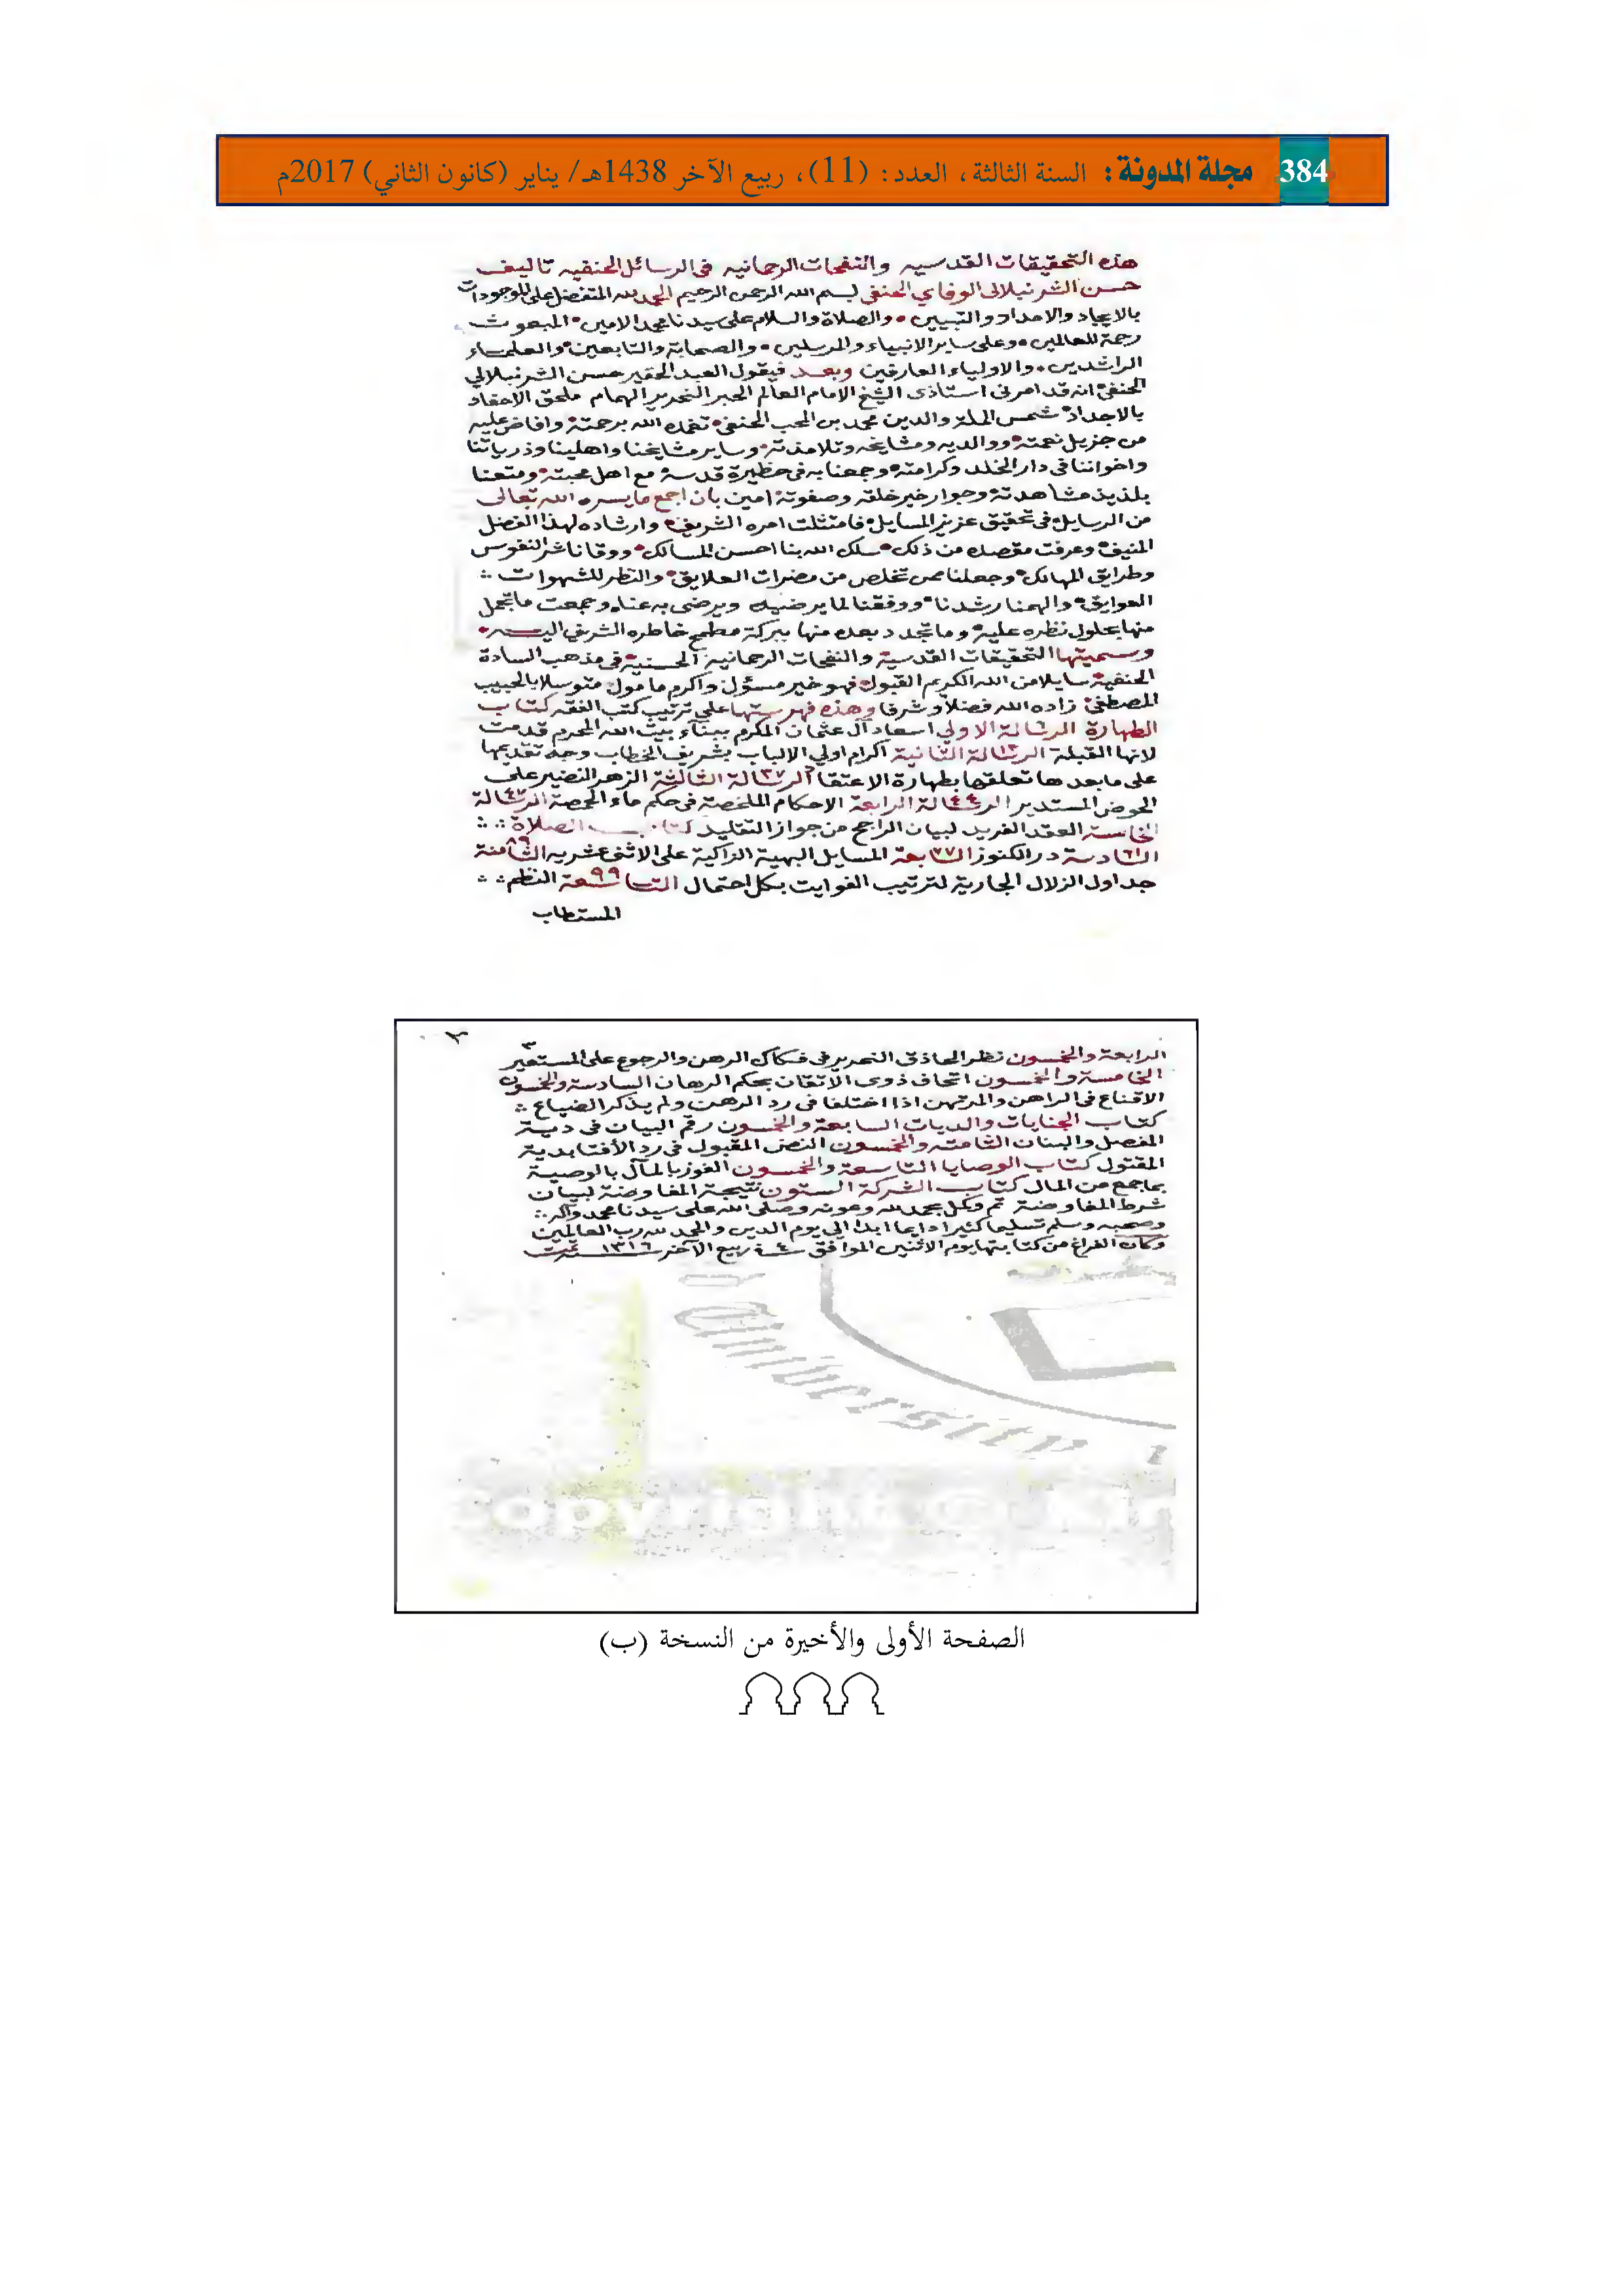 384 مجلة المدونة: السنة الثالثة، العدد: (11)، ربيع الآخر 1438هـ/ يناير (كانون الثاني) 2017م
هذه التحقيقات القدسيه والنفحات الرحمانيه فى الرسائل الحنفيه تاليف
حسن الشرنبلالى الوفاي الحنفي بسم الله الرحمن الرحيم الحمد لله المتفضل على الموجودات
بالايجاد والامداد والتبيين والصلاة والسلام على سيدنا محمد الامين المبعوث
رحمة للعالمين وعلى ساير الانبياء والمرسلين والصحابة والتابعين والعلماء
الراشدين والاولياء العارفين وبعد فيقول العبد الحقير حسن الشرنبلالي
الحنفي انه قد امرنى استاذى الشيخ الامام العالم الحبر النحرير الهمام ملحق الاحفاد
بالاجداد شمس الملة والدين محمد بن المحب الحنفي تغمده الله برحمته وافاض عليه
من جزيل نعمته ووالديه ومشايخه وتلامذته وساير مشايخنا واهلينا وذرياتنا
واخواننا فى دار الخلد وكرامته وجمعنا به فى حظيرة قدسه مع اهل محبته ومتعنا
بلذيذ مشاهدته وجوار خير خلقه وصفوته امين بان اجمع ما يسره الله تعالى
من الرسايل فى تحقيق عزيز المسايل فامتثلت امره الشريف وارشاده لهذا الفضل
المنيف وعرفت مقصده من ذلك سلك الله بنا احسن المسالك ووقانا شر النفوس
وطرايق المهالك وجعلنا ممن تخلص من مضرات العلايق والنظر للشهوات
العوايق والهمنا رشدنا ووفقنا لما يرضيه ويرضى به عنا وجمعت ما تجمل
منها بحلول نظره عليه وما تجدد بعده منها ببركة مطمح خاطره الشريف اليه
وسميتها التحقيقات القدسية والنفحات الرحمانية الحسنية فى مذهب السادة
الحنفية سايلا من الله الكريم القبول فهو خير مسؤل واكرم مامول متوسلا بالحبيب
المصطفى زاده الله فضلا وشرفا وهذه فهرستها على ترتيب كتب الفقه كتاب
الطهارة الرسالة الاولى اسعاد آل عثمان المكرم ببناء بيت الله المحرم قدمت
لانها القبلة الرسالة الثانية ١٢ اكرام اولي الالباب بشريف الخطاب وجه تقديمها
على ما بعدها تعلقها بطهارة الاعتقاد الرسالة الثالثة ٣٧ الزهر النضير على
الحوض المستدير الرسالة الرابعة ٤٤ الاحكام الملخصة فى حكم ماء الحمصة الرسالة ٤٧
الخامسة العقد الفريد لبيان الراجح من جواز التقليد كتاب الصلاة
السادسة ٦١ در الكنوز السابعة ٧٧ المسايل البهية الزاكية على الاثنى عشريه الثامنة ٨٩
جداول الزلال الجارية لترتيب الفوايت بكل احتمال التاسعة ٩٩ النظم
المستطاب
٣
الرابعة والخمسون نظر الحاذق النحرير فى فكاك الرهن والرجوع على المستعير
الخامسة والخمسون اتحاف ذوى الاتقان بحكم الرهان السادسة والخمسون
الاقناع فى الراهن والمرتهن اذا اختلفا فى رد الرهن ولم يذكر الضياع
كتاب الجنايات والديات السابعة والخمسون رقم البيان فى دية
المفصل والبنان الثامنة والخمسون النص المقبول فى رد الأفتا بدية
المقتول كتاب الوصايا التاسعة والخمسون الفوز بالمآل بالوصية
بما جمع من المال كتاب الشركة الستون نتيجة المفاوضة لبيان
شرط المفاوضة تم وكمل بحمد لله وعونه وصلى الله على سيدنا محمد وآله
وصحبه وسلم تسليما كثيرا دايما ابدا الى يوم الدين والحمد لله رب العالمين
وكان الفراغ من كتابتها يوم الاثنين الموافق ٤ ربيع الآخر ١٣١٦ تمت
Copyright © Kin
الصفحة الأولى والأخيرة من النسخة (ب)